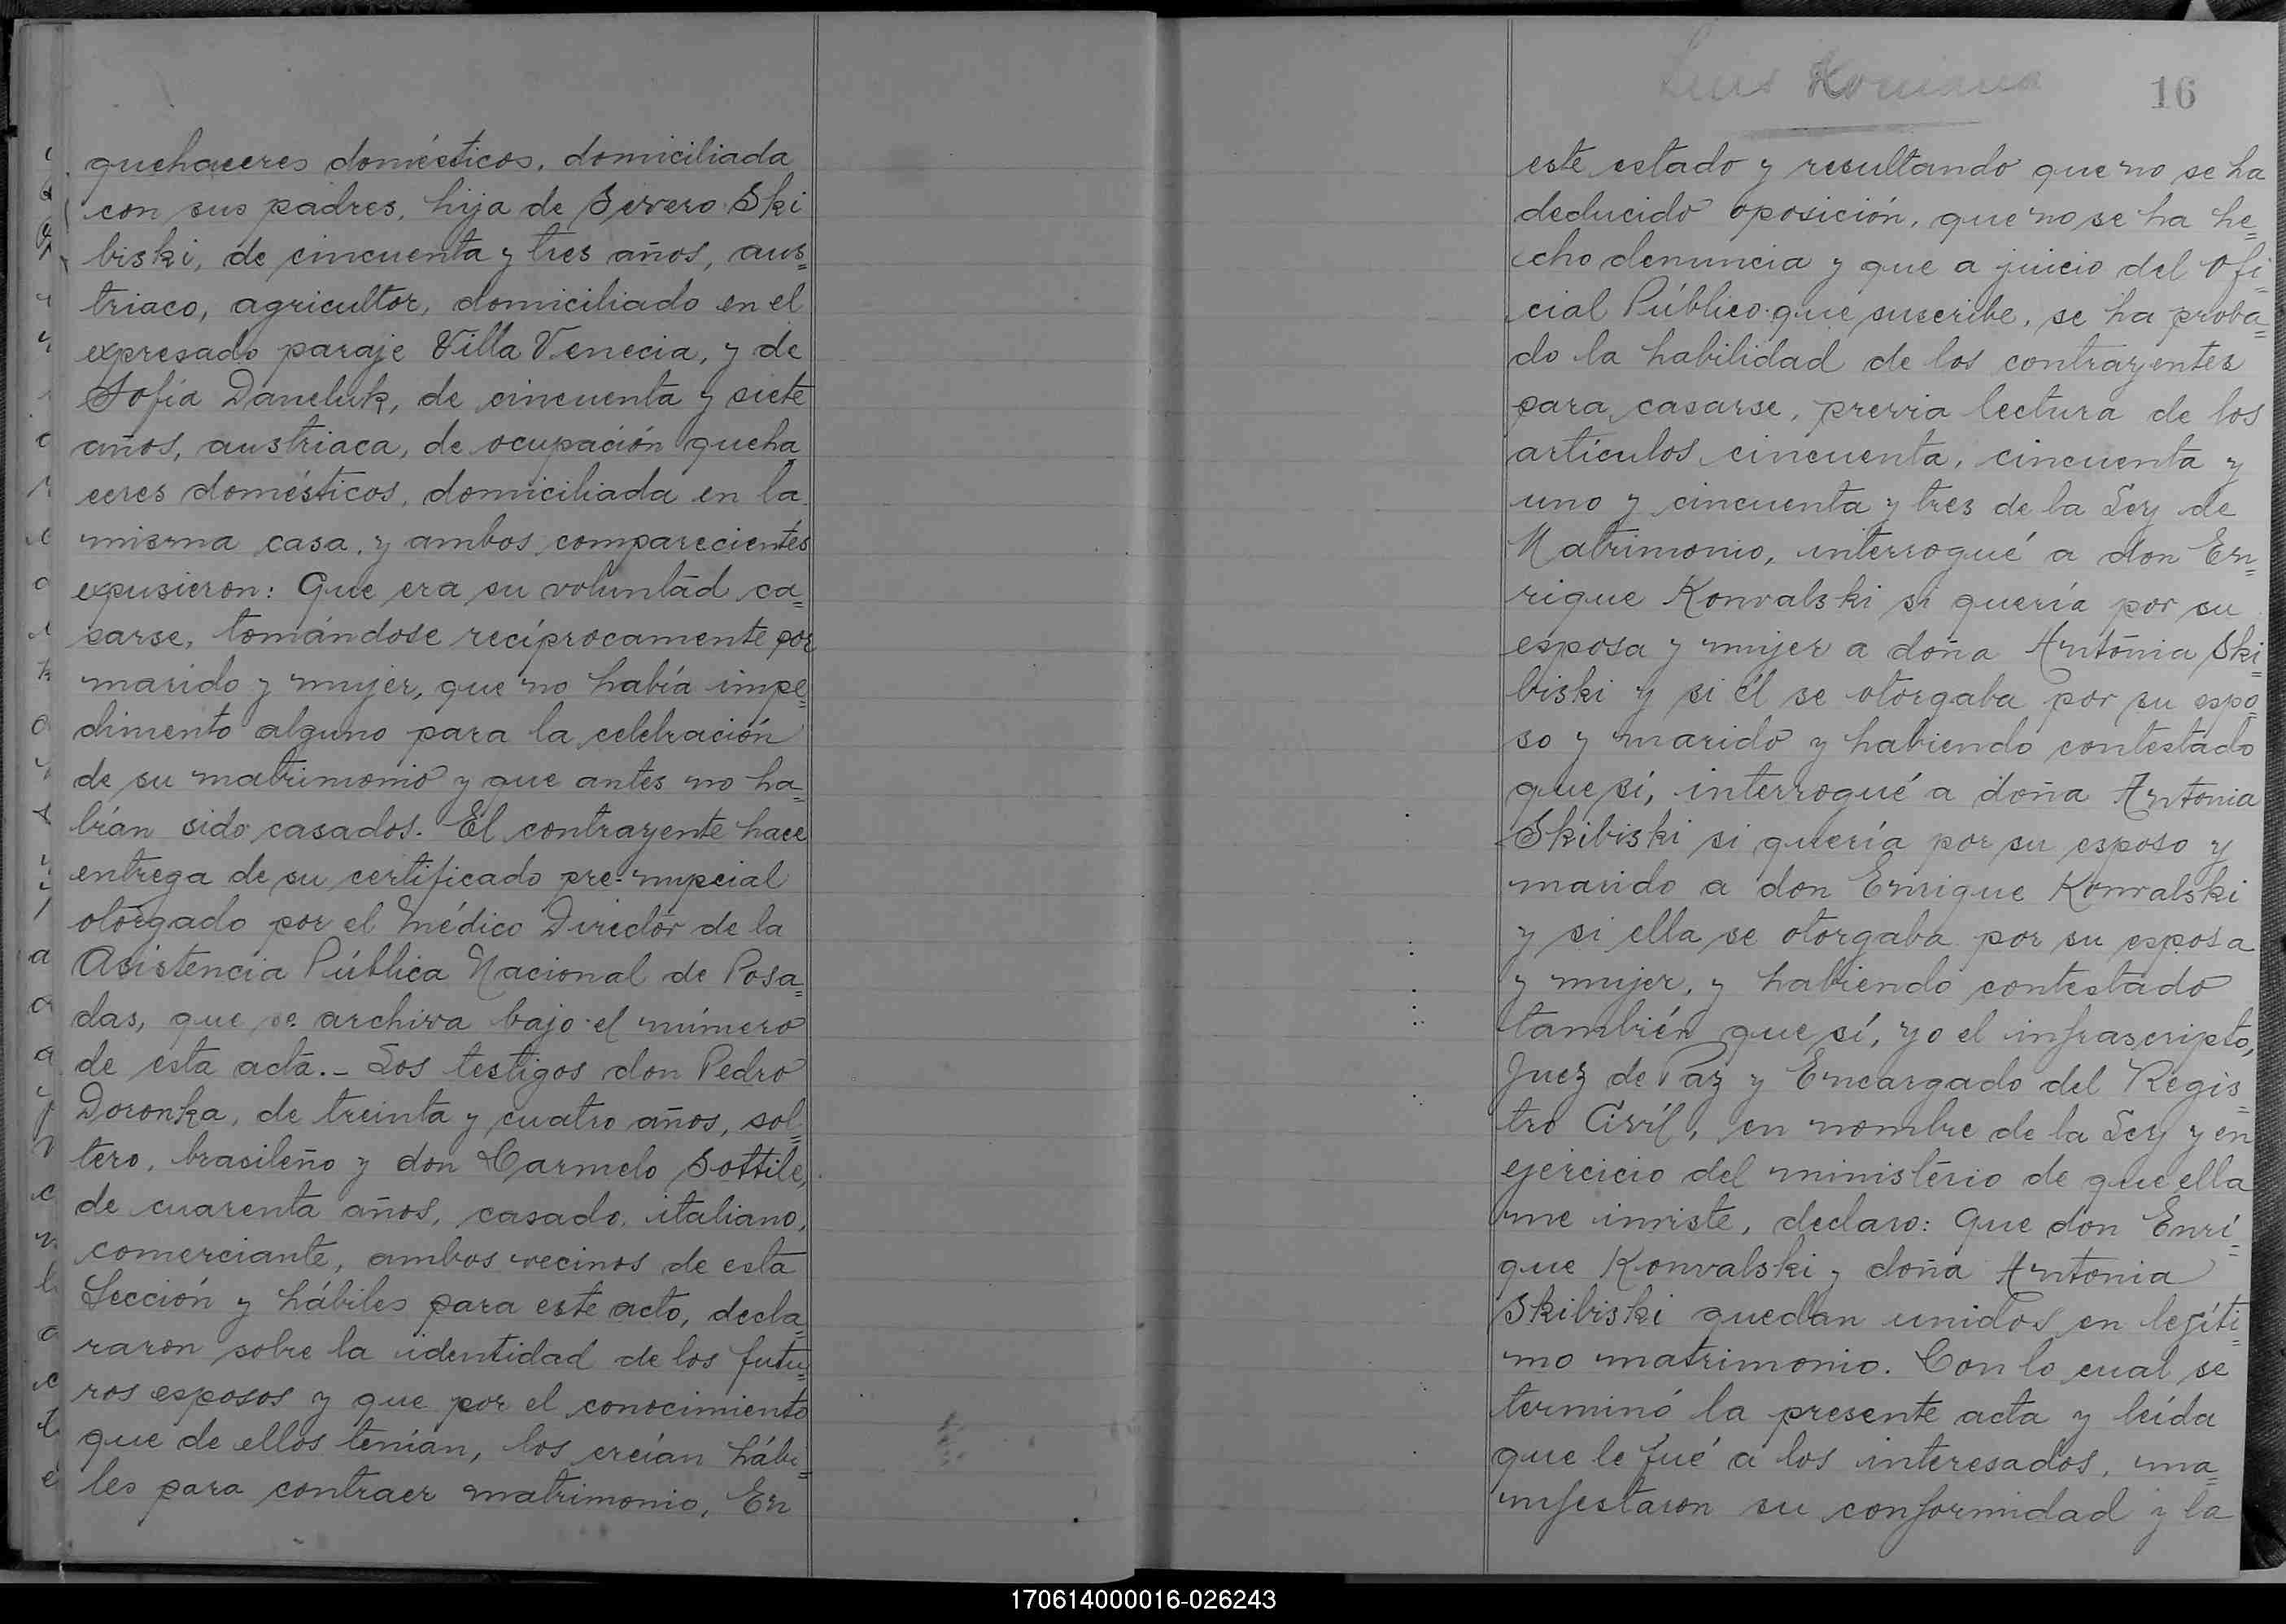 quehaceres domésticos, domiciliada
con sus padres, hija de Severo Ski
biski, de cincuenta y tres años, aus=
triaco, agricultor, domiciliado en el
expresado paraje Villa Venecia, y de
Sofía Daneluk, de cincuenta y siete
años, austriaca, de ocupación queha
ceres domésticos, domiciliada en la
misma casa, y ambos comparecientes
expusieron: Que era su voluntad ca=
sarse, tomándose recíprocamente por
marido y mujer, que no había impe=
dimento alguno para la celebración
de su matrimonio y que antes no ha=
bían sido casados. El contrayente hace
entrega de su certificado pre-nupcial
otorgado por el Médico Director de la
Asistencia Pública Nacional de Posa=
das, que se archiva bajo el número
de esta acta.- Los testigos don Pedro
Doronka, de treinta y cuatro años, sol=
tero, brasileño y don Carmelo Sottile,
de cuarenta años, casado, italiano,
comerciante, ambos vecinos de esta
Sección y hábiles para este acto, decla=
raron sobre la identidad de los futu=
ros esposos y que por el conocimiento
que de ellos tenían, los creían hábi=
les para contraer matrimonio, En
Luis
16
este estado y resultando que no se ha
deducido oposición, que no se ha he=
cho denuncia y que a juicio del Ofi=
cial Público que suscribe, se ha proba=
do la habilidad de los contrayentes
para casarse, previa lectura de los
artículos cincuenta, cincuenta y
uno y cincuenta y tres de la Ley de
Matrimonio, interrogué a don En=
rique Konvalski si quería por su
esposa y mujer a doña Antonia Ski=
biski y si él se otorgaba por su espo=
so y marido y habiendo contestado
que sí, interrogué a doña Antonia
Skibiski si quería por su esposo y
marido a don Enrique Konvalski
y si ella se otorgaba por su esposa
y mujer, y habiendo contestado
también que sí, yo el infrascripto,
Juez de Paz y Encargado del Regis=
tro Civil, en nombre de la Ley y en
ejercicio del ministerio de que ella
me inviste, declaro: Que don Enri=
que Konvalski y doña Antonia
Skibiski quedan unidos en legíti=
mo matrimonio. Con lo cual se
terminó la presente acta y leída
que le fué a los interesados, ma=
nifestaron su conformidad y la
170614000016-026243